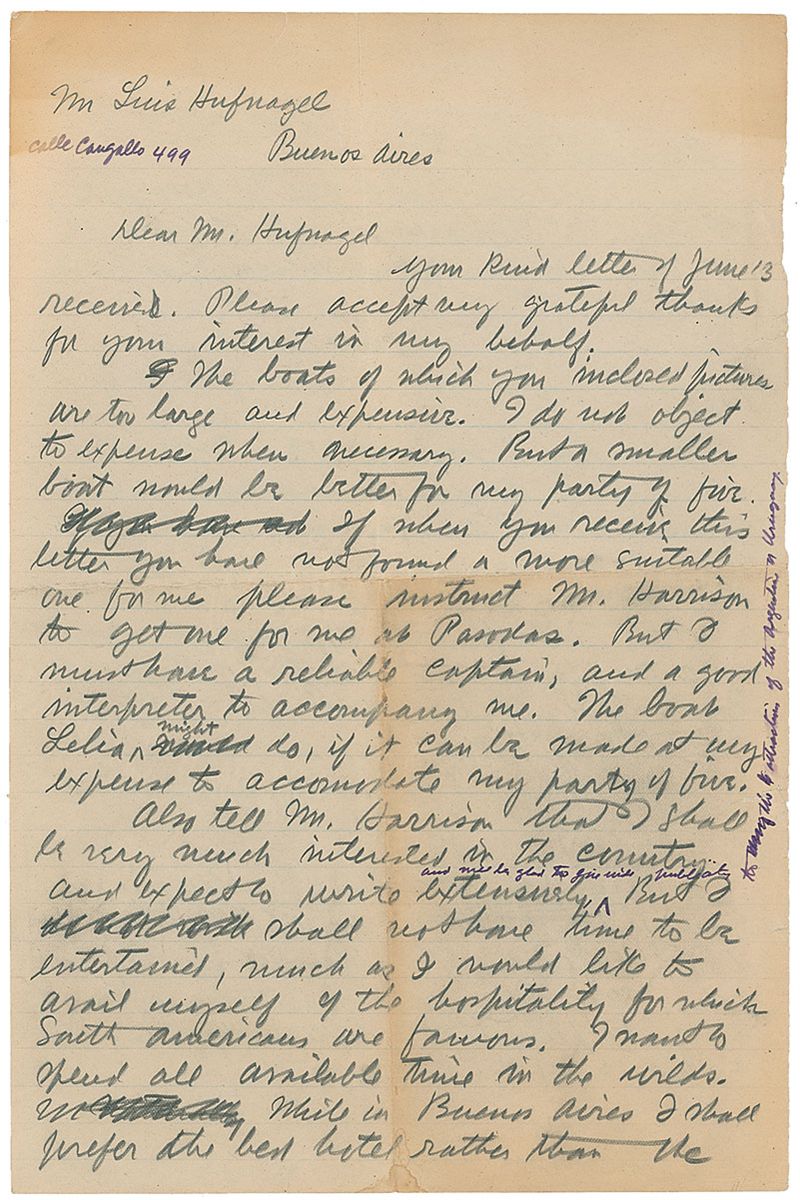 Mr Luis Hufnagel
calle Cangallo 499 Buenos Aires
Dear Mr. Hufnagel
your kind letter of June 13
received. Please accept my grateful thanks
for your interest in my behalf.
The boats of which you inclosed pictures
are too large and expensive. I do not object
to expense when necessary. But a smaller
boat would be better for my party of five.
If when you receive this
letter you have not found a more suitable
one for me please instruct Mr. Harrison
to get one for me at Pasodas. But I
must have a reliable captain, and a good
interpreter to accompany me. The boat
Lelia, might do, if it can be made at my
expense to accomodate my party of five.
Also tell Mr. Harrison that I shall
be very much interested in the country
and will be glad to give wide publicity
to the attractions of the Argentine or Uruguay.
and expect to write extensively. But I
shall not have time to be
entertained, much as I would like to
avail myself of the hospitality for which
South americans are famous. I want to
spend all available time in the wilds.
While in Buenos Aires I shall
prefer the best hotel rather than the